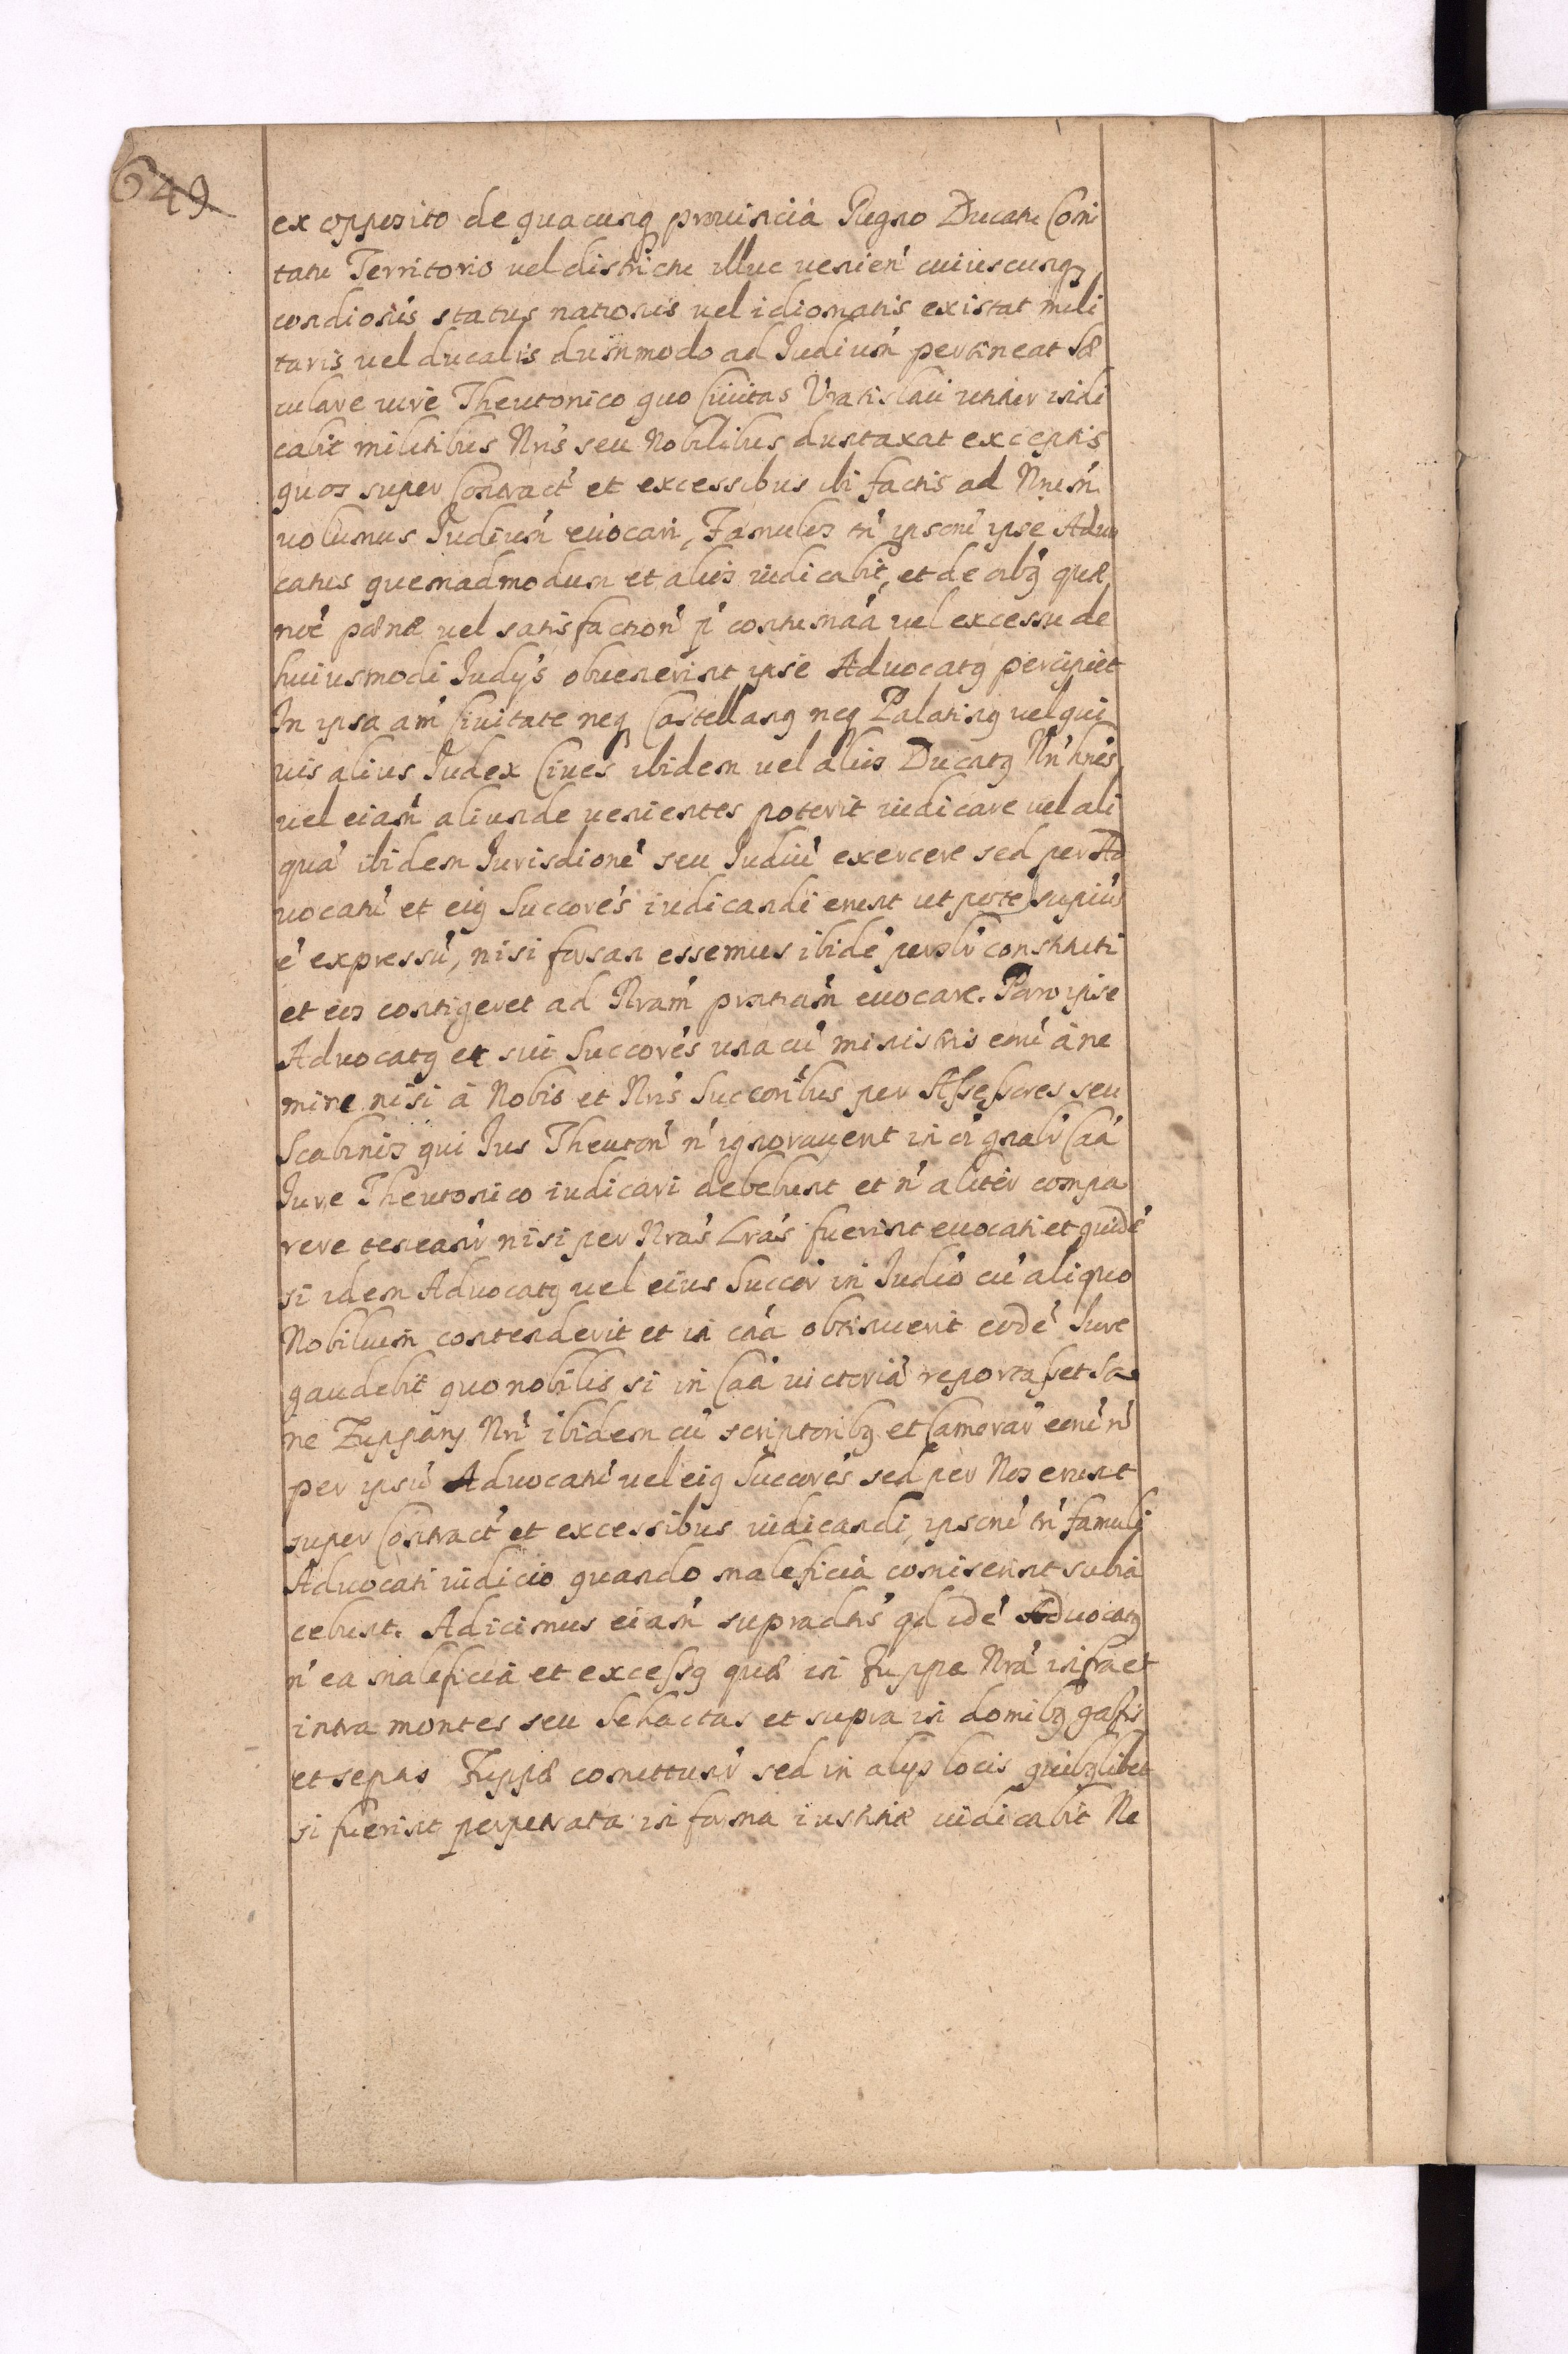 649
ex opposito de quacunq₃ prouincia Regno Ducatu Comi
tatu Territorio vel districtu illuc uenien̄ cuiuscunq₃
condiōnis status nationis vel idiomatis existat mili
taris vel ducalis dummodo ad Iudiūm pertineat Sæ
culare iure Theutonico quo Ciuitas Vratislaui utitur iudi
cabit militibus Nr̄is seu Nobilibus duntaxat exceptis
quos super Contract̄ et excessibus ibi factis ad Nr̄um
volumus Iudiūm euocari, Famulos tn̄ ipsorū ipse Aduo
catus quemadmodum et alios iudicabit, et de oībꝫ quæ
noīe pœnæ vel satisfaction̄ p̄ contumāa vel excessu de
huiusmodi Iudijs obuenerint ipse Aduocatꝫ percipiet
In ipsa am̄ Ciuitate neq₃ Castellanꝫ neq₃ Palatinꝫ vel qui
uis alius Iudex Ciues ibidem vel alios Ducatꝫ Nr̄i hoīes
vel eiām aliunde uenientes poterit iudicare vel ali
quā ibidem Iurisdionē seu Iudiū exercere sed per Ad
uocatū et eiꝫ Succorēs iudicandi erunt ut patet supiūs
ē expressū, nisi forsan essemus ibidē persolr constituti
et eos contigeret ad Nrām prntiām euocare. Porro ipse
Aduocatꝫ et sui Succorēs una cū ministris eorū à ne
mine nisi à Nobis et Nr̄is Succorībus per Assessores seu
Scabinos qui Ius Theuton̄ n̄ ignorauerint in oī gnalī Cāā
Iure Theutonico iudicari debebunt et n̄ aliter compa
rere teneanr̄ nisi per Nrās Lrās fuerint euocati et quidē
si idem Aduocatꝫ vel eius Succor̄ in Iudīo cū aliquo
Nobilium contenderit et in cāā obtinuerit eodē Iure
gaudebit quo nobilis si in Cāā uictoriā reportasset Sa
ne Zuppary Nrī ibidem cū scriptoribꝫ et Camerar̄ eorū n̄
per ipsū Aduocatū vel eiꝫ Succorēs sed per Nos erunt
super Contract̄ et excessibus iudicandi, ipsorū tn̄ famuli
Aduocati iudicio quando maleficia comiserint subia
cebunt. Adicimus eiām supradtīs qd idē Aduocatꝫ
n̄ ea maleficia et excessꝫ quæ in Zuppa Nrā infra et
intra montes seu Schactas et supra in domibꝫ
et septis Zuppæ comittunr̄ sed in alijs locis quibꝫlibet
si fuerint perpetrata in forma iustitiæ iudicabit Ne